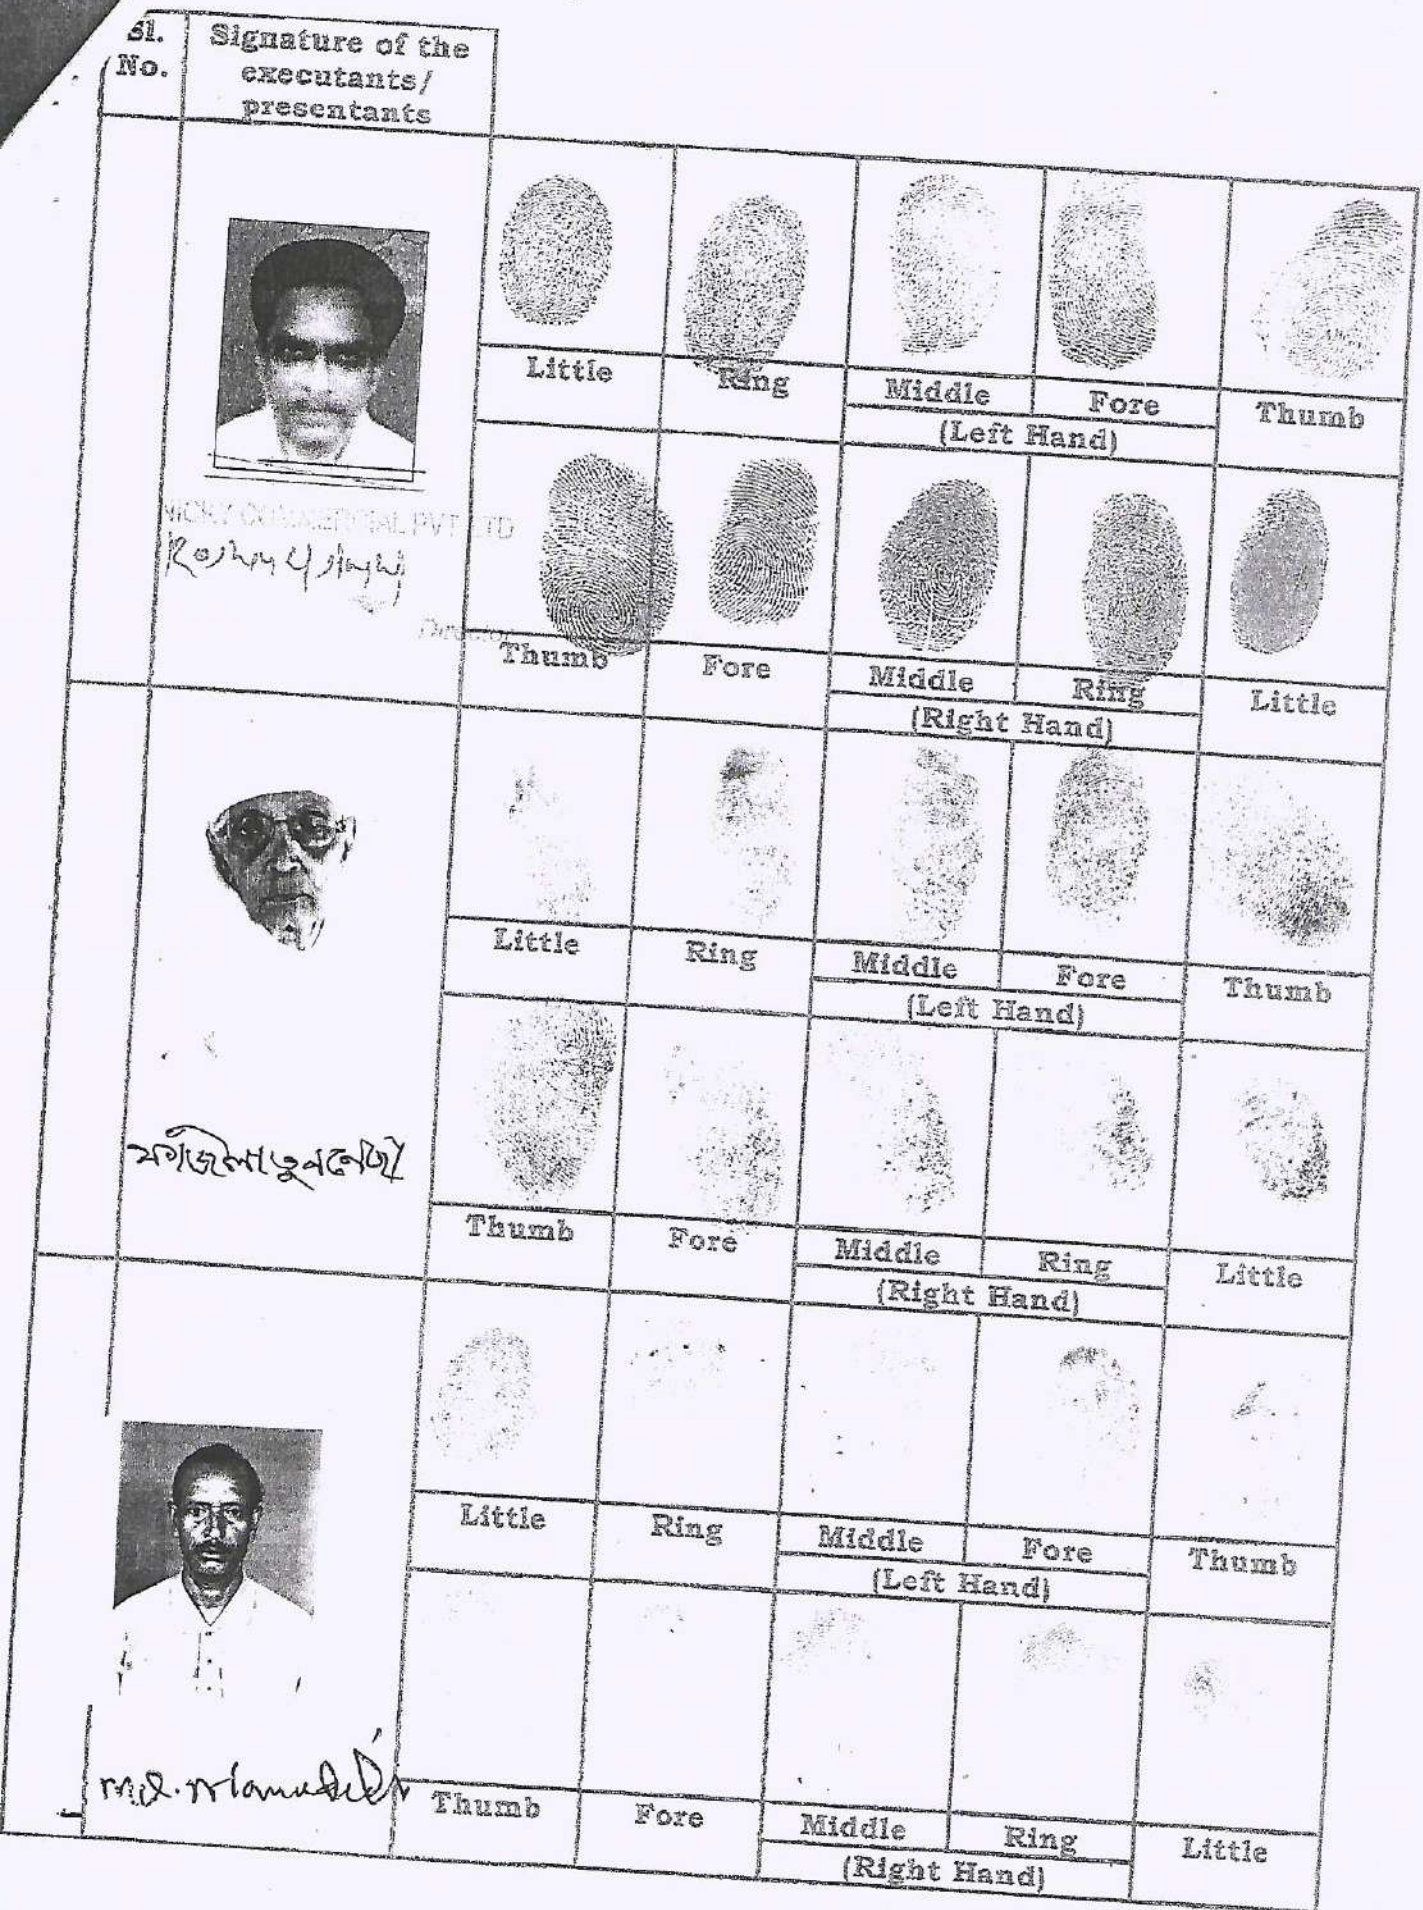 Sl.
No.
Signature of the
executants/
presentants
Little Ring Middle Fore Thumb
(Left Hand)
NICKY COMMERCIAL PVT LTD
Director
Thumb Fore Middle Ring Little
(Right Hand)
Little Ring Middle Fore Thumb
(Left Hand)
Thumb Fore Middle Ring Little
(Right Hand)
Little Ring Middle Fore Thumb
(Left Hand)
Md.
Thumb Fore Middle Ring Little
(Right Hand)